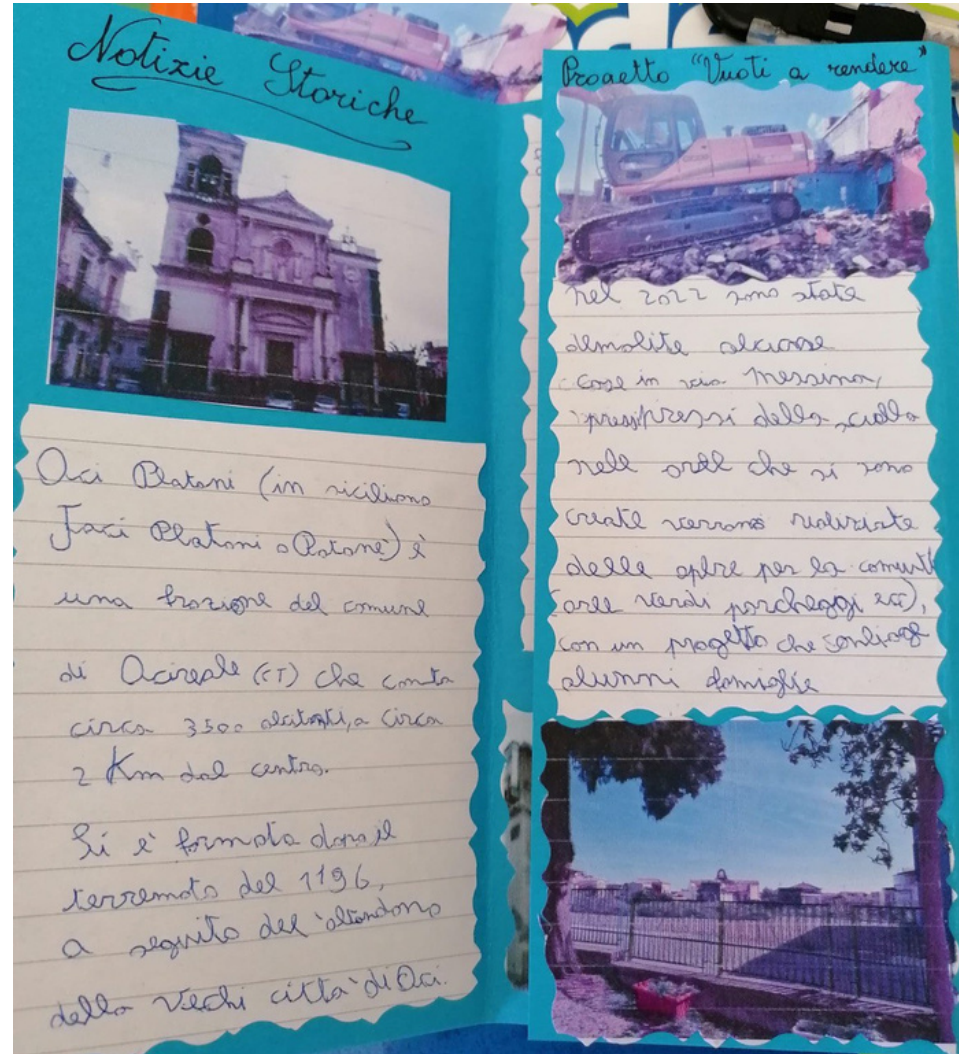 Notizie Storiche
Aci Platani (in siciliano
Jaci Platani o Patanè) è
una frazione del comune
di Acireale (CT) che conta
circa 3500 abitanti, a circa
2 Km dal centro.
Si è formata dopo il
terremoto del 1196,
a seguito dell'abbandono
della Vechi città di Aci.
Progetto "Vuoti a rendere"
nel 2022 sono state
demolite alcune
case in via Messina,
pressi della scuola
nelle aree che si sono
create verranno realizzate
delle opere per la comunità
(aree verdi parcheggi ecc),
con un progetto che
alunni famiglie